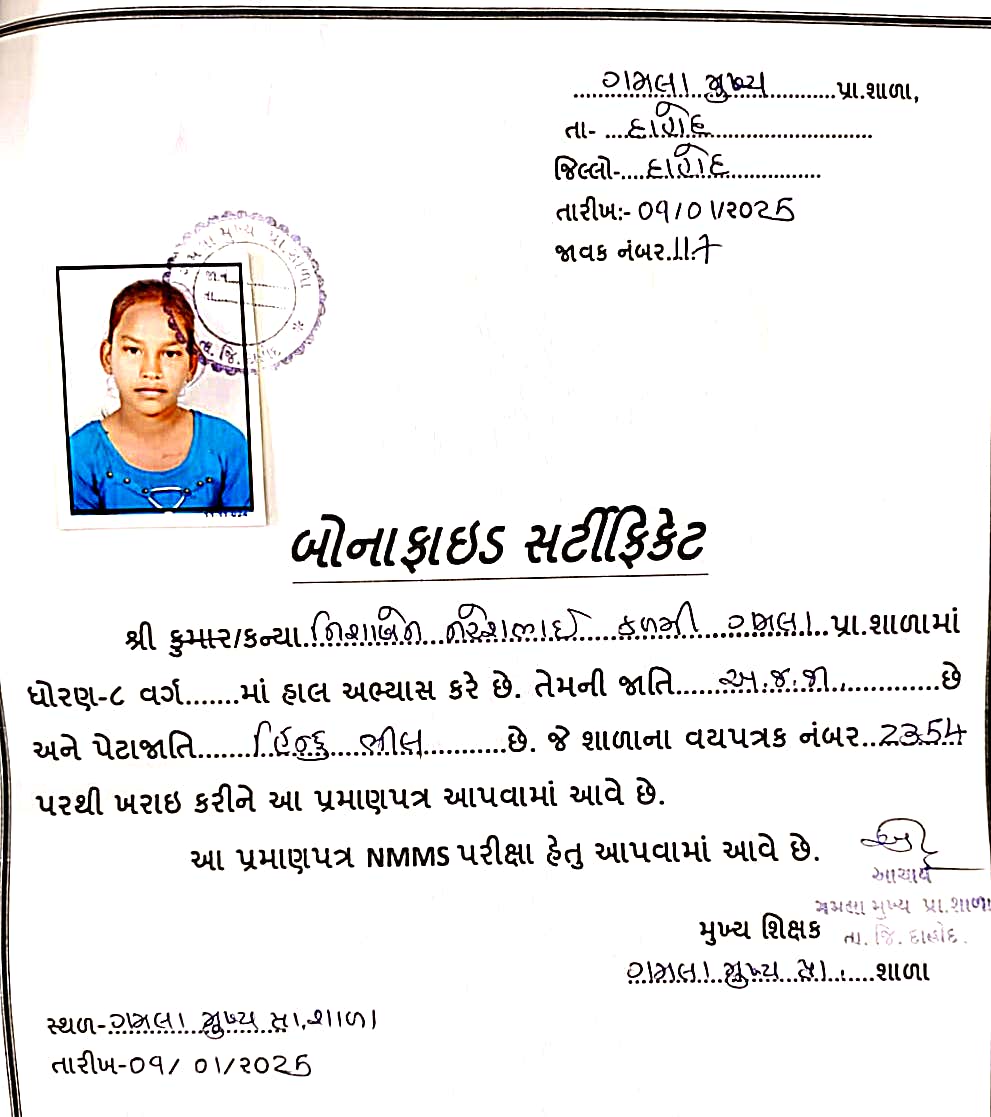 ગમલા મુખ્ય પ્રા.શાળા,
તા- દાહોદ
જિલ્લો- દાહોદ
તારીખ:- ૦૧/૦૧/૨૦૨૫
જાવક નંબર.117
મુખ્ય પ્રા.શાળા
જા.ન.
તા.
તા. જિ. દાહોદ
બોનાફાઇડ સર્ટીફિકેટ
શ્રી કુમાર/કન્યા નિશાબેન નરેશભાઈ કળમી ગમલા પ્રા.શાળામાં
ધોરણ-૮ વર્ગ.......માં હાલ અભ્યાસ કરે છે. તેમની જાતિ અ.જ.જા. છે
અને પેટાજાતિ હિન્દુ ભીલ છે. જે શાળાના વયપત્રક નંબર..2354
પરથી ખરાઇ કરીને આ પ્રમાણપત્ર આપવામાં આવે છે.
આ પ્રમાણપત્ર NMMS પરીક્ષા હેતુ આપવામાં આવે છે.
આચાર્ય
ગમલા મુખ્ય પ્રા.શાળા
તા. જિ. દાહોદ.
મુખ્ય શિક્ષક
ગમલા મુખ્ય પ્રા. શાળા
સ્થળ- ગમલા મુખ્ય પ્રા.શાળા
તારીખ-૦૧/ ૦૧/૨૦૨૫